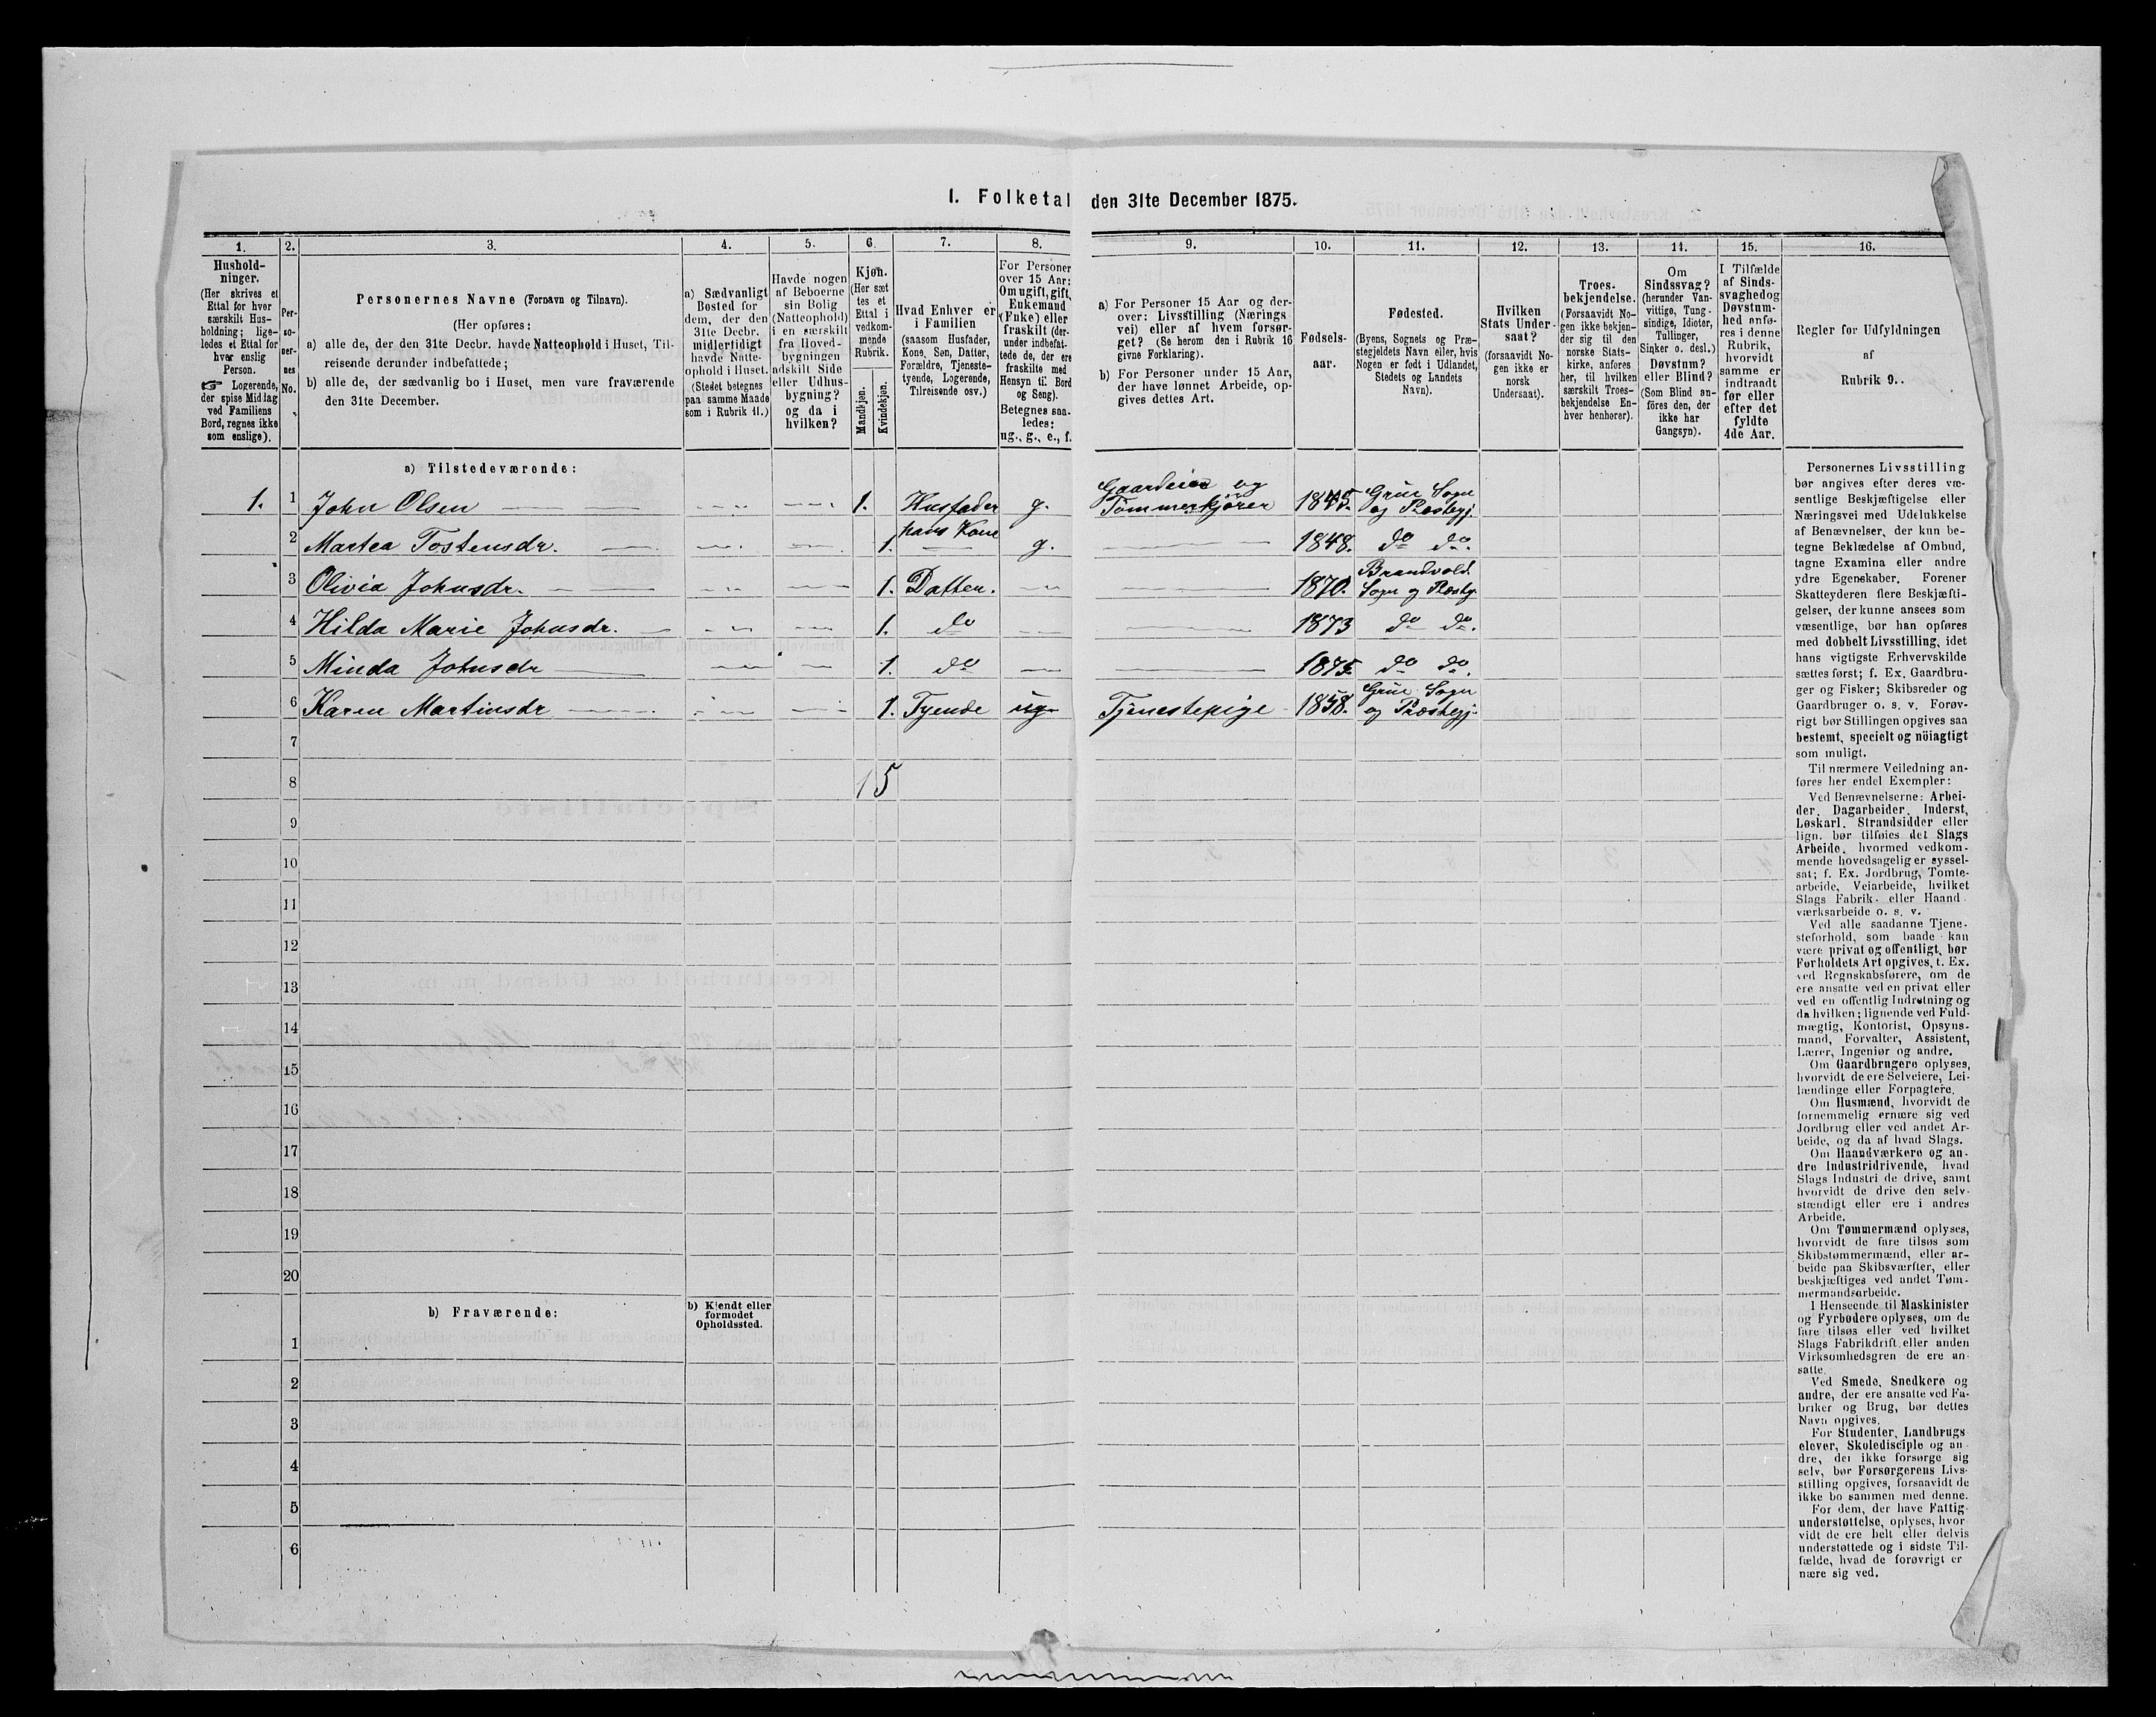 I. Folketal den 31te December 1875.
1. 2. 3. 4. 5. 6. 7. 8. 9. 10. 11. 12. 13. 14. 15. 16.
Hushold-
ninger.
(Her skrives et
Ettal for hver
særskilt Hus-
holdning; lige-
ledes et Ettal for
hver enslig
Person.
☞ Logerende,
der spise Middag
ved Familiens
Bord, regnes ikke
som enslige).
Per-
so-
ner-
nes
No.
Personernes Navne (Fornavn og Tilnavn).
(Her opføres:
a) alle de, der den 31te Decbr. havde Natteophold i Huset, Til-
reisende derunder indbefattede;
b) alle de, der sædvanlig bo i Huset, men vare fraværende
den 31te December.
a) Sædvanligt
Bosted for
dem, der den
31te Decbr.
midlertidigt
havde Natte-
ophold i Huset.
(Stedet betegnes
paa samme Maade
som i Rubrik 11.)
Havde nogen
af Beboerne
sin Bolig
(Natteophold)
i en særskilt
fra Hoved-
bygningen
adskilt Side
eller Udhus-
bygning?
og da i
hvilken?
Kjøn.
(Her sæt
tes et
Ettal i
vedkom-
mende
Rubrik.
Mandkjøn.
Kvindekjøn.
Hvad Enhver er
i Familien
(saasom Husfader,
Kone, Søn, Datter,
Forældre, Tjeneste-
tyende, Logerende,
Tilreisende osv.)
For Personer
over 15 Aar:
Om ugift, gift,
Enkemand
(Enke) eller
fraskilt (der-
under indbefat-
tede de, der ere
fraskilte med
Hensyn til Bord
og Seng).
Betegnes saa-
ledes:
ug., g., e., f.
a) For Personer 15 Aar og der-
over: Livsstilling (Nærings
vei) eller af hvem forsør-
get? (Se herom den i Rubrik 16
givne Forklaring).
b) For Personer under 15 Aar,
der have lønnet Arbeide, op-
gives dettes Art.
Fødsels-
aar.
Fødested.
(Byens, Sognets og Præ-
stegjeldets Navn eller, hvis
Nogen er født i Udlandet,
Stedets og Landets
Navn).
Hvilken
Stats Under-
saat?
(forsaavidt No-
gen ikke er
norsk
Undersaat).
Troes-
bekjendelse.
(Forsaavidt No-
gen ikke bekjen-
der sig til den
norske Stats-
kirke, anføres
her, til hvilken
særskilt Troes-
bekjendelse En-
hver henhører).
Om
Sindssvag?
(herunder Van-
vittige, Tung-
sindige, Idioter,
Tullinger,
Sinker o. desl.)
Døvstum?
eller Blind?
(Som Blind an-
føres den, der
ikke har
Gangsyn).
I Tilfælde
af Sinds-
svaghed og
Døvstum-
hed anfø-
res i denne
Rubrik,
hvorvidt
samme er
indtraadt
før eller
efter det
fyldte
4de Aar.
Regler for Udfyldningen
af
Rubrik 9.
a) Tilstedeværende:
1. 1 John Olsen 1. Husfader g. Gaardeier og Tømmerkjører 1845. Grue Sogn og Præstegj.
2 Martea Tostensdr. 1. hans Kone g. 1848. do do.
3 Olivia Johnsdr. 1. Datter. 1870. Brandvold Sogn og Præstg.
4 Hilda Marie Johnsdr. 1. do 1873 do do.
5 Minda Johnsdr 1. do 1875 do do.
6 Karen Martinsdr 1. Tyende ug Tjenestepige 1858. Grue Sogn og Præstegj.
7
8 1 5
9
10
11
12
13
14
15
16
17
18
19
20
b) Fraværende:
b) Kjendt eller
formodet
Opholdssted.
1
2
3
4
5
6
Personernes Livsstilling
bør angives efter deres væ-
sentlige Beskjæftigelse eller
Næringsvei med Udelukkelse
af Benævnelser, der kun be-
tegne Beklædelse af Ombud,
tagne Examina eller andre
ydre Egenskaber. Forener
Skatteyderen flere Beskjæfti-
gelser, der kunne ansees som
væsentlige, bør han opføres
med dobbelt Livsstilling, idet
hans vigtigste Erhvervskilde
sættes først; f. Ex. Gaardbru-
ger og Fisker; Skibsreder og
Gaardbruger o. s. v. Forøv-
rigt bør Stillingen opgives saa
bestemt, specielt og nöiagtigt
som muligt.
Til nærmere Veiledning an-
føres her endel Exempler:
Ved Benævnelserne: Arbei-
der, Dagarbeider, Inderst,
Løskarl, Strandsidder eller
lign. bør tilføies det Slags
Arbeide, hvormed vedkom-
mende hovedsagelig er syssel-
sat; f. Ex. Jordbrug, Tomte-
arbeide, Veiarbeide, hvilket
Slags Fabrik- eller Haand-
værksarbeide o. s. v.
Ved alle saadanne Tjene-
steforhold, som baade kan
være privat og offentligt, bør
Forholdets Art opgives, t. Ex.
ved Regnskabsførere, om de
ere ansatte ved en privat eller
ved en offentlig Indretning og
da hvilken; lignende ved Fuld-
mægtig, Kontorist, Opsyns-
mand, Forvalter, Assistent,
Lærer, Ingeniør og andre.
Om Gaardbrugere oplyses,
hvorvidt de ere Selveiere, Lei-
lændinge eller Forpagtere.
Om Husmænd, hvorvidt de
fornemmelig ernære sig ved
Jordbrug eller ved andet Ar-
beide, og da af hvad Slags.
Om Haandværkere og an-
dre Industridrivende, hvad
Slags Industri de drive, samt
hvorvidt de drive den selv-
stændigt eller ere i andres
Arbeide.
Om Tømmermænd oplyses,
hvorvidt de fare tilsøs som
Skibstømmermænd, eller ar-
beide paa Skibsværfter, eller
beskjæftiges ved andet Tøm-
mermandsarbeide.
I Henseende til Maskinister
og Fyrbødere oplyses, om de
fare tilsøs eller ved hvilket
Slags Fabrikdrift eller anden
Virksomhedsgren de ere an-
satte.
Ved Smede, Snedkere og
andre, der ere ansatte ved Fa-
briker og Brug, bør dettes
Navn opgives.
For Studenter, Landbrugs
elever, Skoledisciple og an-
dre, der ikke forsørge sig
selv, bør Forsørgerens Livs-
stilling opgives, forsaavidt de
ikke bo sammen med denne.
For dem, der have Fattig-
understøttelse, oplyses, hvor-
vidt de ere helt eller delvis
understøttede og i sidste Til-
fælde, hvad de forøvrigt er
nære sig ved.